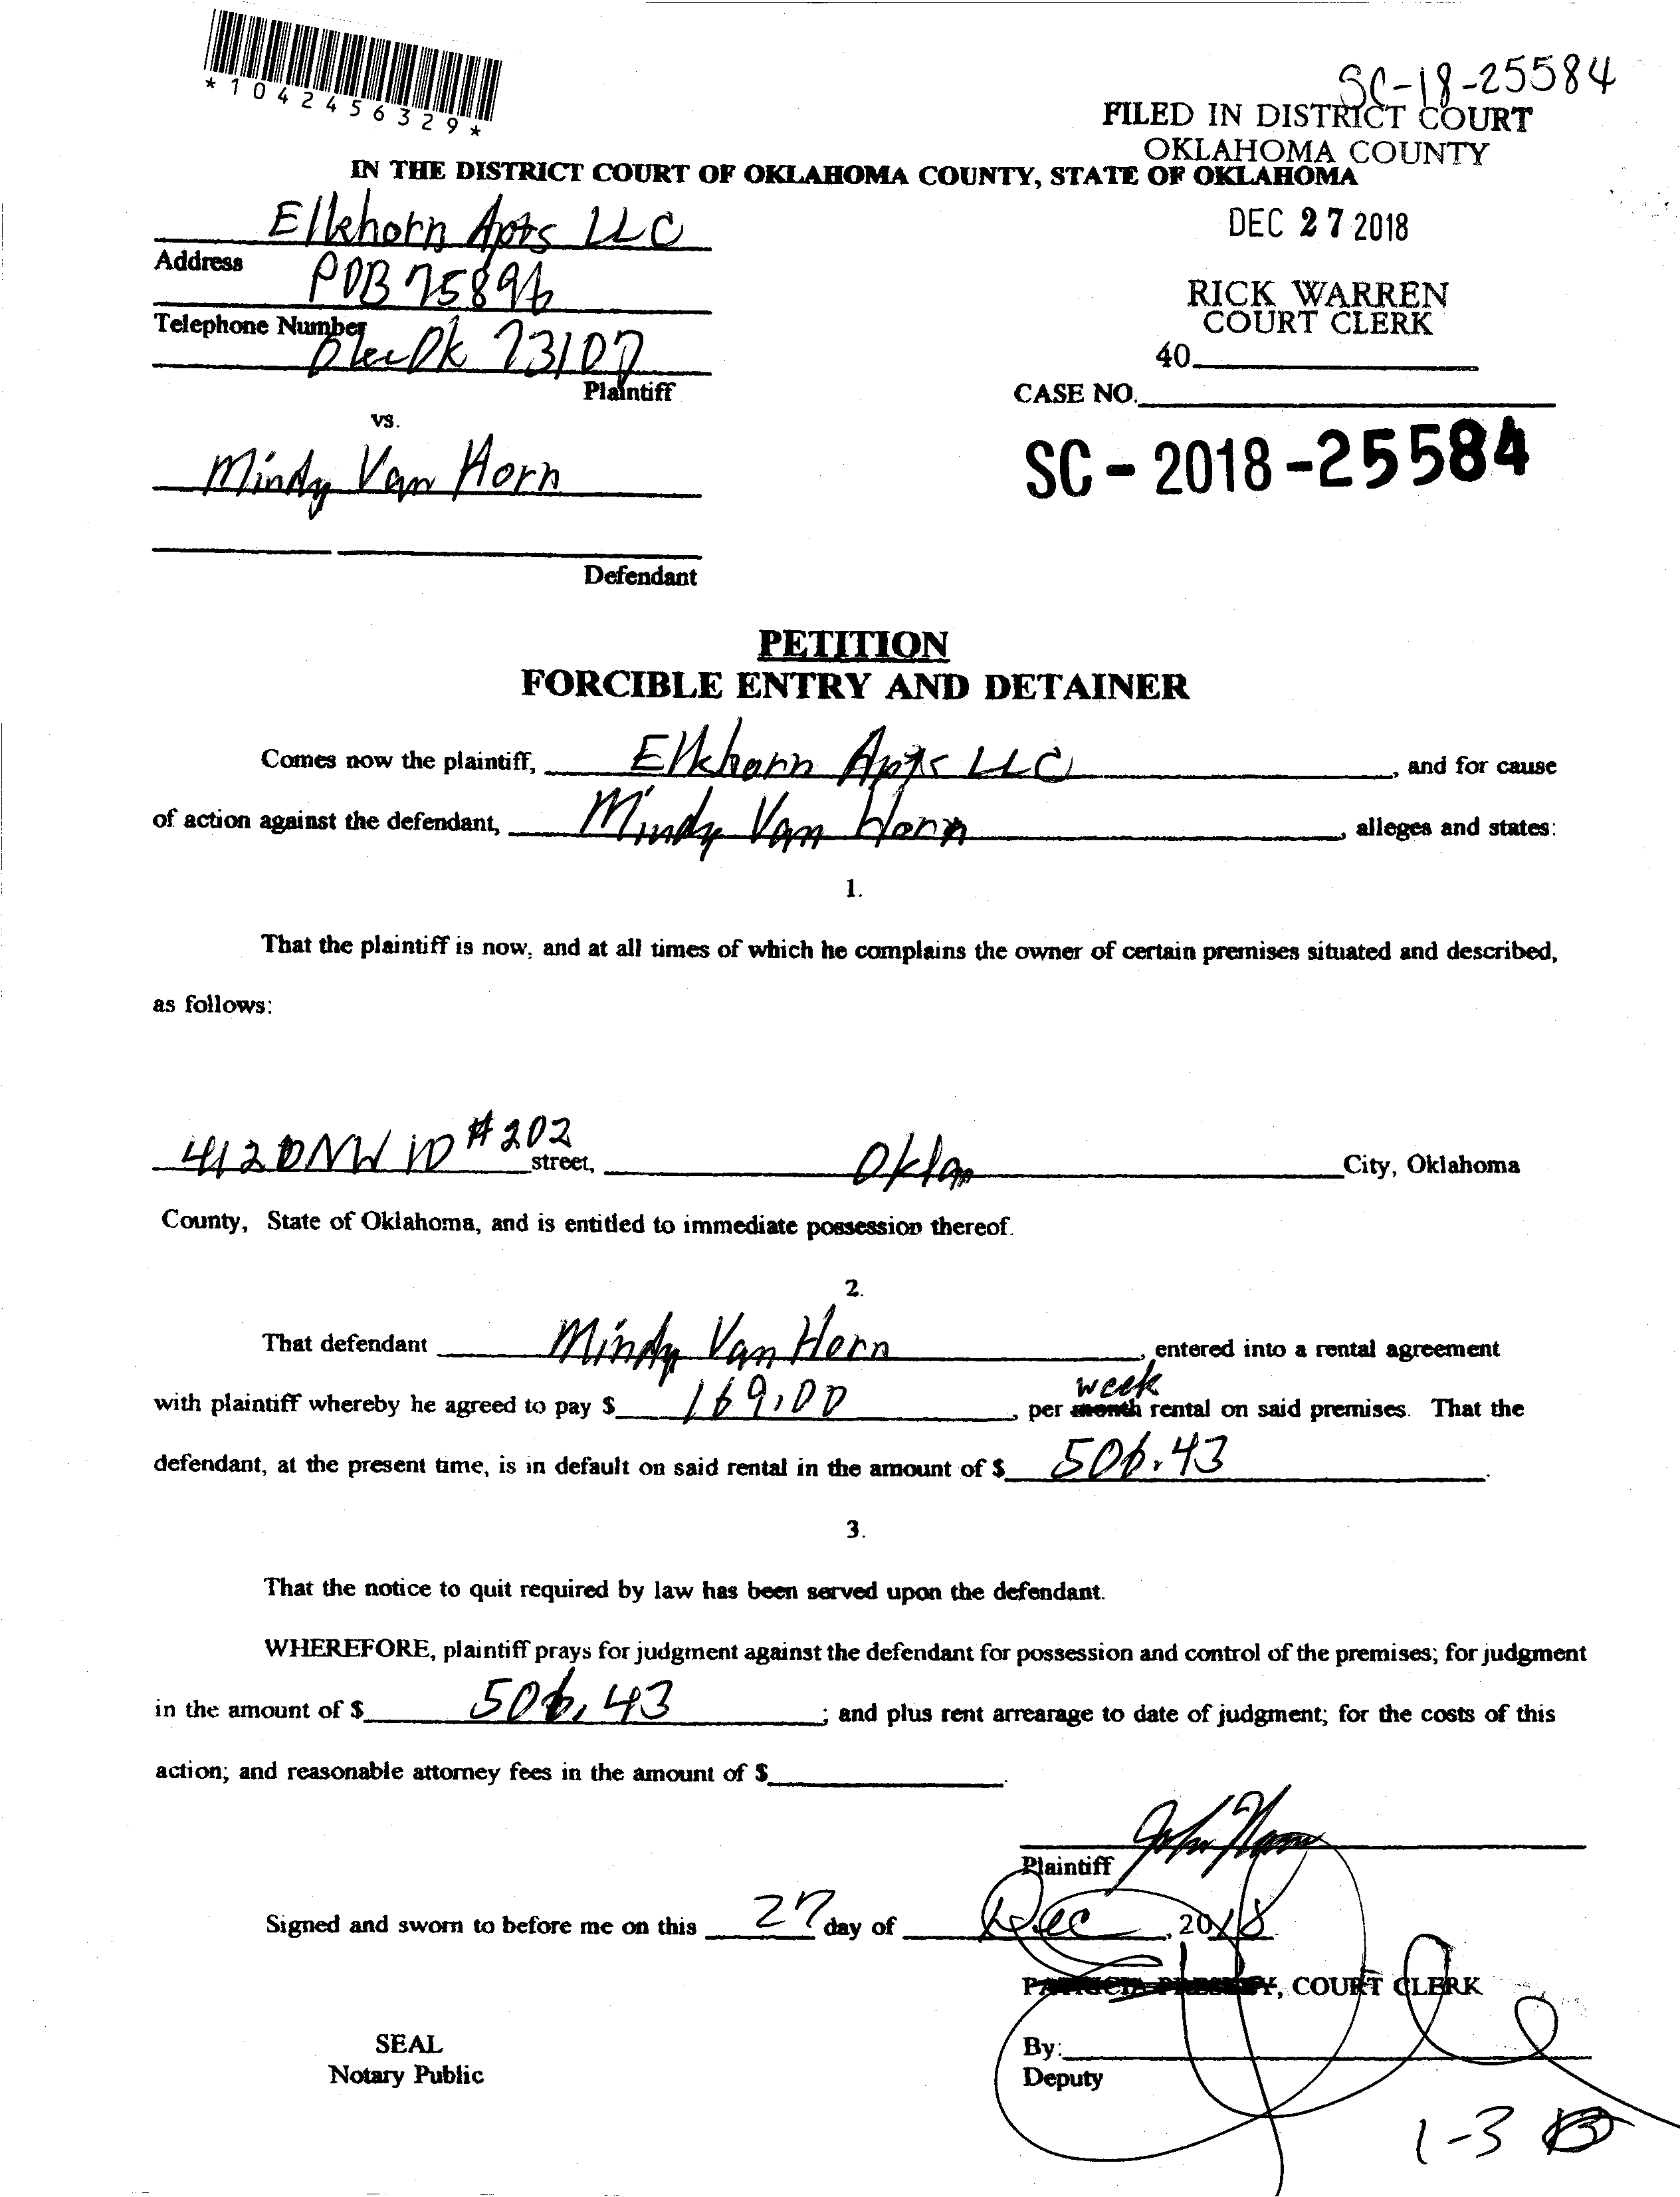 *1042456329*
SC-18-25584
FILED IN DISTRICT COURT
OKLAHOMA COUNTY
IN THE DISTRICT COURT OF OKLAHOMA COUNTY, STATE OF OKLAHOMA
Elkhorn Apts LLC
DEC 27 2018
Address
POB 75896
RICK WARREN
COURT CLERK
Telephone Number
Ok 73107
40
Plaintiff
CASE NO.
vs.
Mindy Van Horn
SC-2018-25584
Defendant
PETITION
FORCIBLE ENTRY AND DETAINER
Comes now the plaintiff, Elkhorn Apts LLC, and for cause
of action against the defendant, Mindy Van Horn, alleges and states:
1.
That the plaintiff is now, and at all times of which he complains the owner of certain premises situated and described,
as follows:
4120 NW 10 #202 street, Okla City, Oklahoma
County, State of Oklahoma, and is entitled to immediate possession thereof.
2.
That defendant Mindy Van Horn, entered into a rental agreement
week
with plaintiff whereby he agreed to pay $ 169.00, per month rental on said premises. That the
defendant, at the present time, is in default on said rental in the amount of $ 506.43.
3.
That the notice to quit required by law has been served upon the defendant.
WHEREFORE, plaintiff prays for judgment against the defendant for possession and control of the premises; for judgment
in the amount of $ 506.43; and plus rent arrearage to date of judgment; for the costs of this
action; and reasonable attorney fees in the amount of $.
Plaintiff
Signed and sworn to before me on this 27 day of Dec, 2018.
PATRICIA PRESLEY, COURT CLERK
SEAL
Notary Public
By:
Deputy
1-3